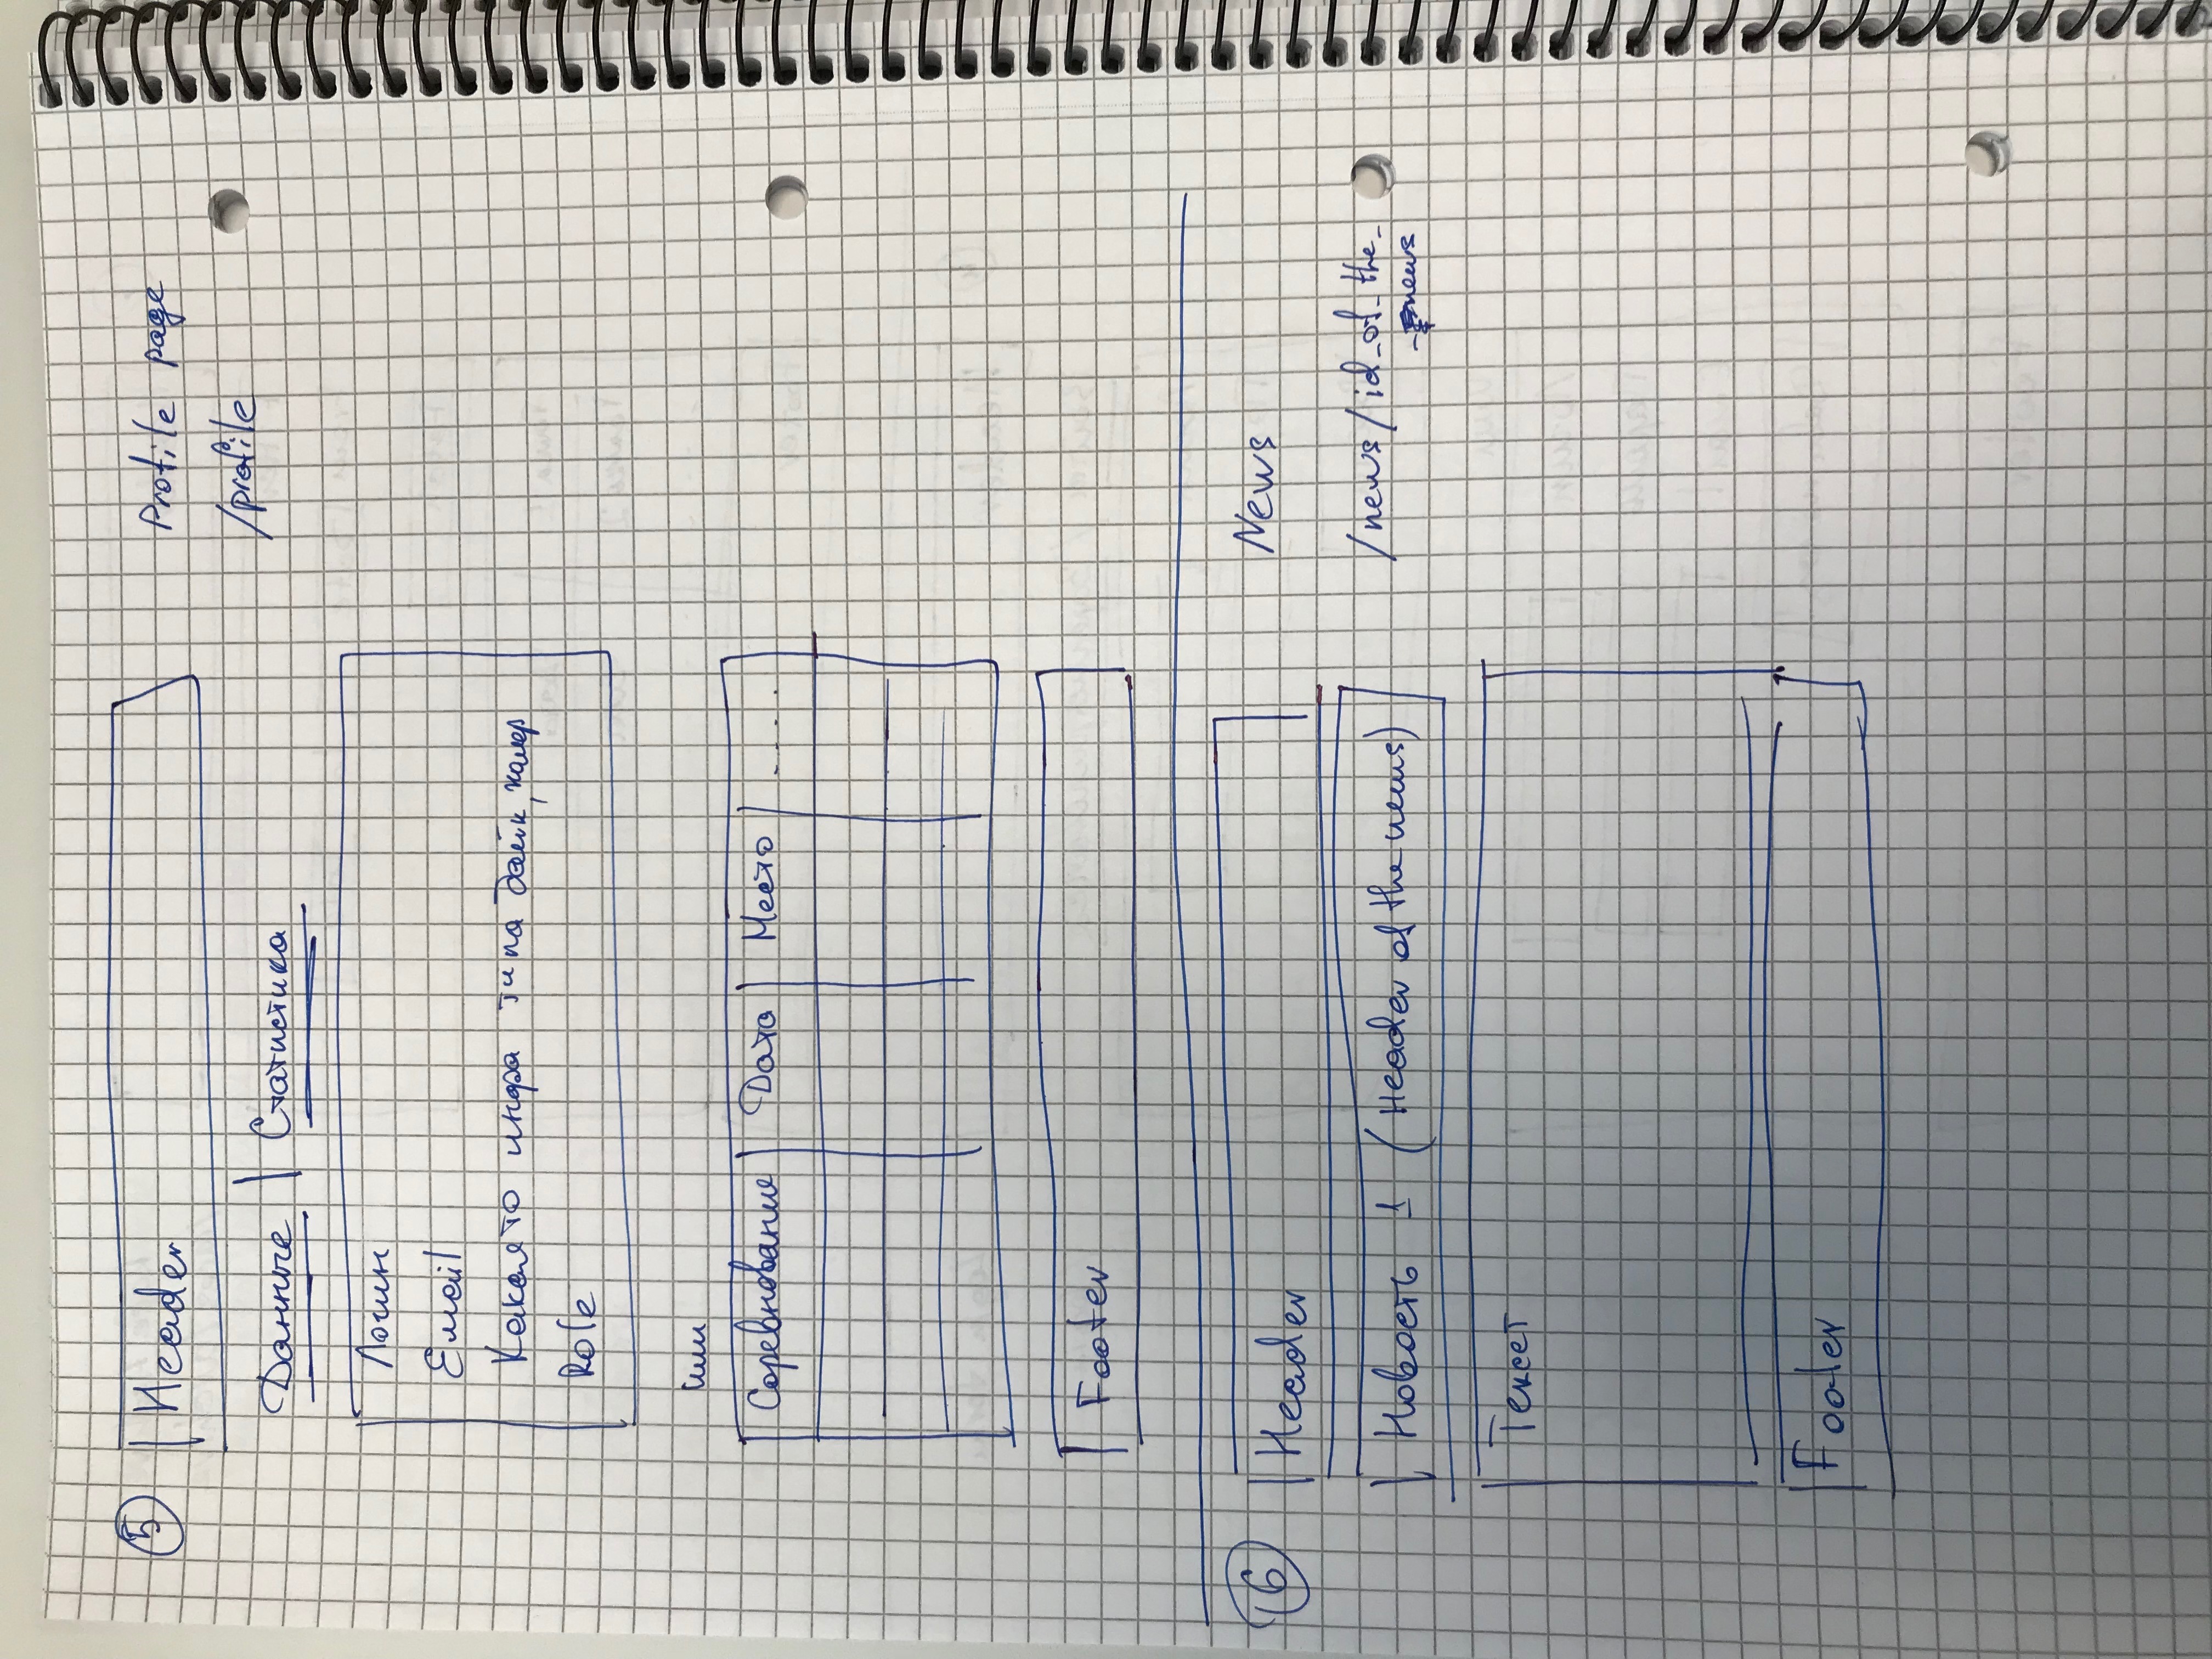 5
Header
Profile page
/profile
Данные | Статистика
Логин
Email
Какая то инфа типа байк, номер
Role
или
Соревнование Дата Место ....
Footer
6
Header
News
Новость 1 (Header of the news)
/news/id_of_the_
_news
Текст
Footer